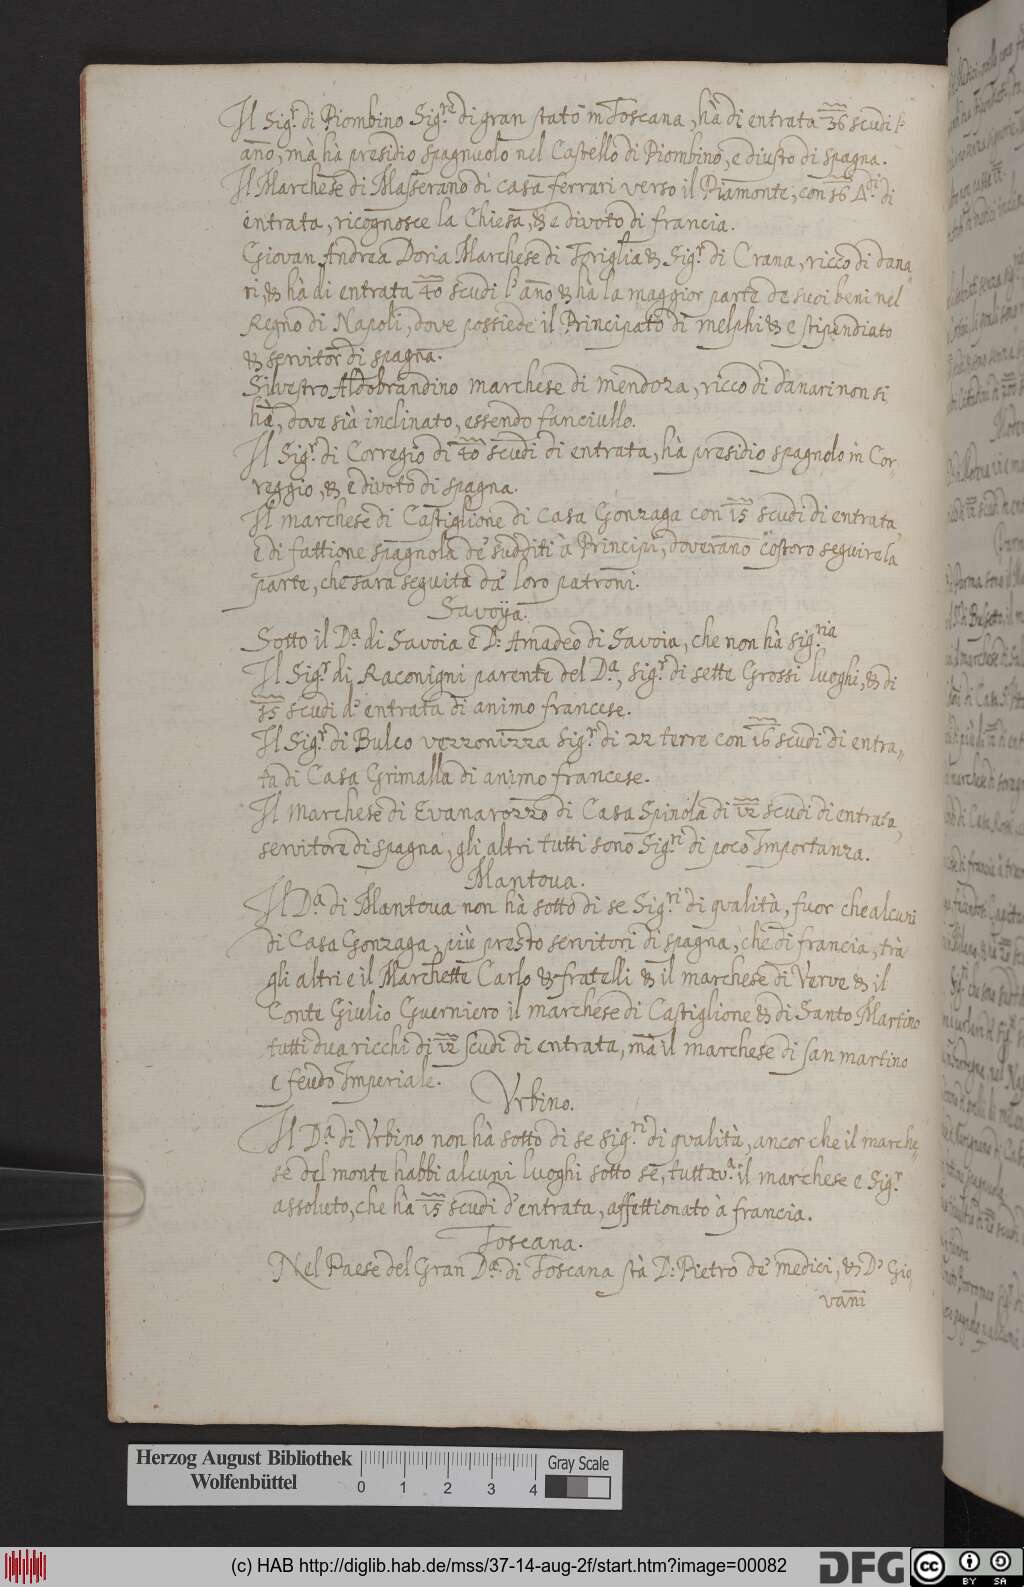 Il Sig.r di Piombino Sig.re di gran stato in Toscana, hà di entrata 36 scudi l'
año, mà hà presidio spagnuolo nel Castello di Piombino, e diusto di spagna.
Il Marchese di Masserano di casa ferrari verso il Piamonte, con 16 di
entrata, ricognosce la Chiesa, & e divoto di francia.
Giovan Andrea Doria Marchese di Toriglia & Sig.r di Crana, ricco di dana„
ri, & hà di entrata 40 scudi l'año & hà la maggior parte de suoi beni nel
Regno di Napoli, dove possiede il Principato di melphi & e stipendiato
& servitor di spagna.
Silvestro Aldobrandino marchese di mendoza, ricco di danari non si
hà, dove sià inclinato, essendo fanciullo.
Il Sig.r di Corregio di 40 scudi di entrata, hà presidio spagnolo in Cor„
reggio, & e divoto di spagna.
Il marchese di Castiglione di casa Gonzaga con 15 scudi di entrata
e di fattione spagnola de' sudditi à Principi, doverano costoro seguire la
parte, che sara seguita da loro patroni.
Savoÿa.
Sotto il D.a di Savoia e D: Amadeo di Savoia, che non hà sig.ria
Il Sig.r di Raconigni parente del D.a, sig.r di sette Grossi luoghi, & di
35 scudi d'entrata di animo francese.
Il Sig.r di Bulco vezzonizza sig.r di 22 terre con 16 scudi di entra„
ta di Casa Grimalla di animo francese.
Il marchese di Evanarozzo di Casa Spinola di 12 scudi di entrata,
servitore di spagna, gli altri tutti sono Sig.ri di poco Importanza.
Mantova.
Il D.a di Mantova non hà sotto di se Sig.ri di qvalità, fuor che alcuni
di Casa Gonzaga, più presto servitori di spagna, che di francia, trà
gli altri e il Marchette Carlo & fratelli & il marchese di Verve & il
Conte Giulio Guerniero il marchese di Castiglione & di Santo Martino
tutti dua ricchi di 12 scudi di entrata, mà il marchese di san martino
e feudo Imperiale.
Vrbino.
Il D.a di Vrbino non hà sotto di se sig.ri di qvalità, ancor che il marche„
se del monte habbi alcuni luoghi sotto se, tuttav.a il marchese e Sig.r
assoluto, che hà 15 scudi d'entrata, affettionato à francia.
Toscana.
Nel Paese del Gran D.a di Toscana stà D: Pietro de' medici, & D' Gio„
vani
Herzog August Bibliothek
Wolfenbüttel
0 1 2 3 4
Gray Scale
(c) HAB http://diglib.hab.de/mss/37-14-aug-2f/start.htm?image=00082
DFG
cc BY SA